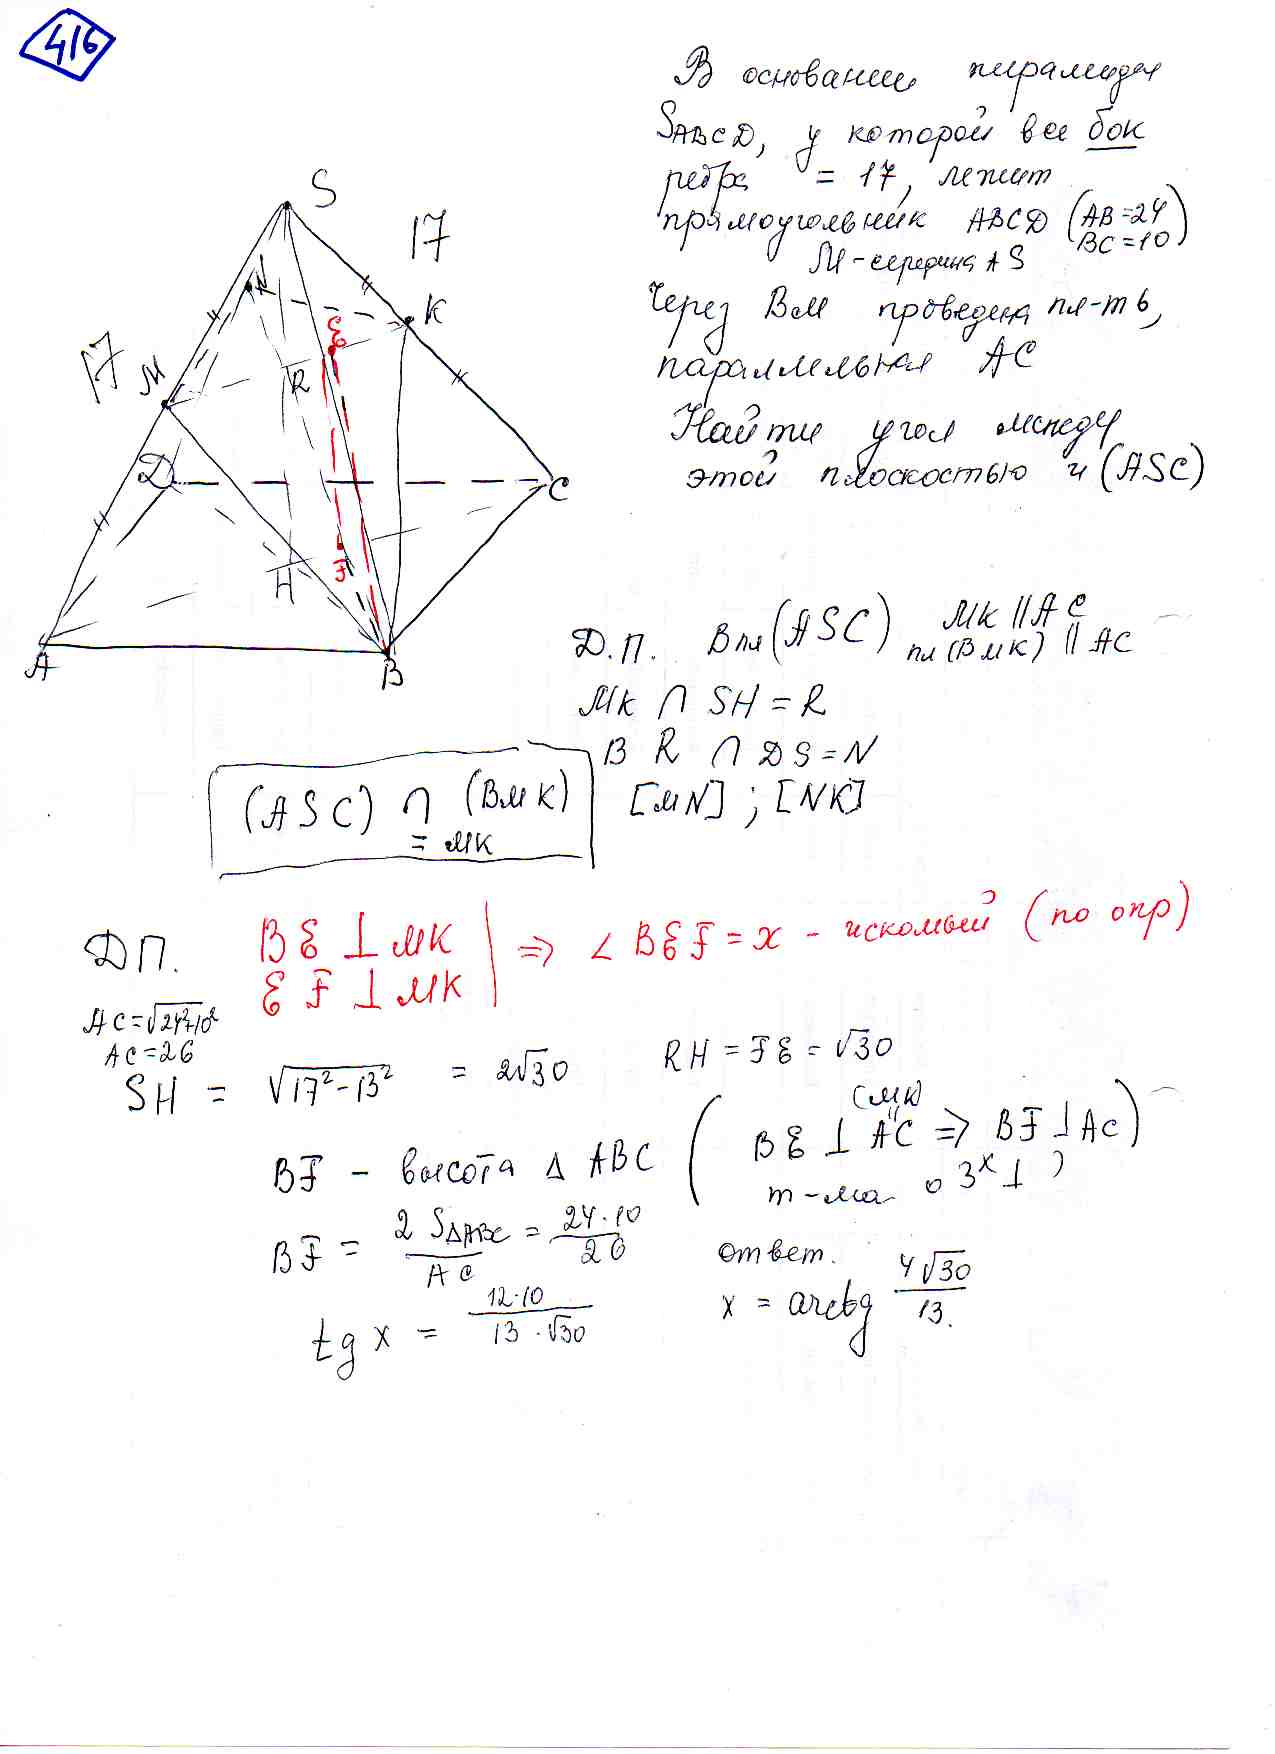 416
В основании пирамиды
SABCD, у которой все бок
ребра = 17, лежит
прямоугольник ABCD (AB=24
BC=10)
M-середина AS
Через BM проведена пл-ть,
параллельная AC
Найти угол между
этой плоскостью и (ASC)
S
17
N
K
E
17
M
R
D
C
H
F
A
B
Д.П. В пл (ASC) MK || AC
пл (BMK) || AC
MK ∩ SH = R
BR ∩ DS = N
[MN] ; [NK]
(ASC) ∩ (BMK)
= MK
ДП. BE ⊥ MK
EF ⊥ MK
⇒ ∠ BEF = x - искомый (по опр)
AC = √24²+10²
AC = 26
SH = √17²-13² = 2√30
RH = FE = √30
BF - высота Δ ABC
(BE ⊥ AC (MK) ⇒ BF ⊥ AC)
т-ма о 3х ⊥)
BF = 2 SΔABC / AC = 24·10 / 26
tg x = 12·10 / 13·√30
ответ.
x = arctg 4√30 / 13.